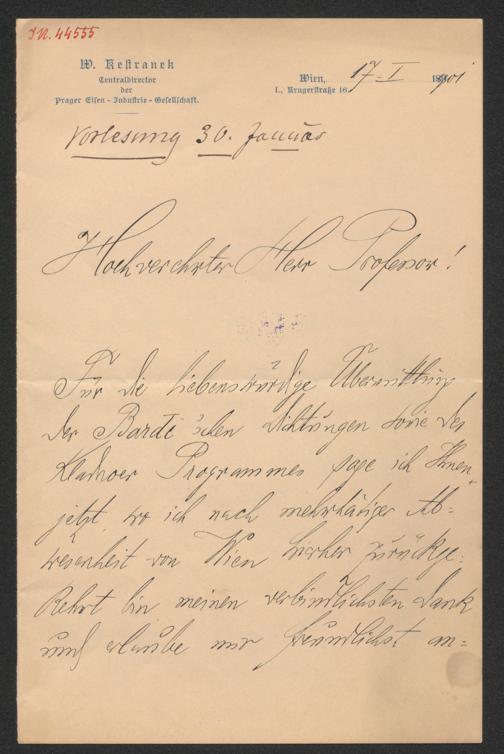 J.N. 44555
W. Kestranek
Centraldirector
der
Prager Eisen-Industrie-Gesellschaft.
Wien, 17-I 1901
I., Krugerstraße 16
Vorlesung 30. Januar
Hochverehrter Herr Professor!
Für die liebenswürdige Übermittlung
der Bardi'schen Dichtungen sowie des
Kladnoer Programmes sage ich Ihnen,
jetzt, wo ich nach mehrtägiger Ab-
wesenheit von Wien hierher zurückge-
kehrt bin meinen verbindlichsten Dank
und erlaube mir freundlichst an-